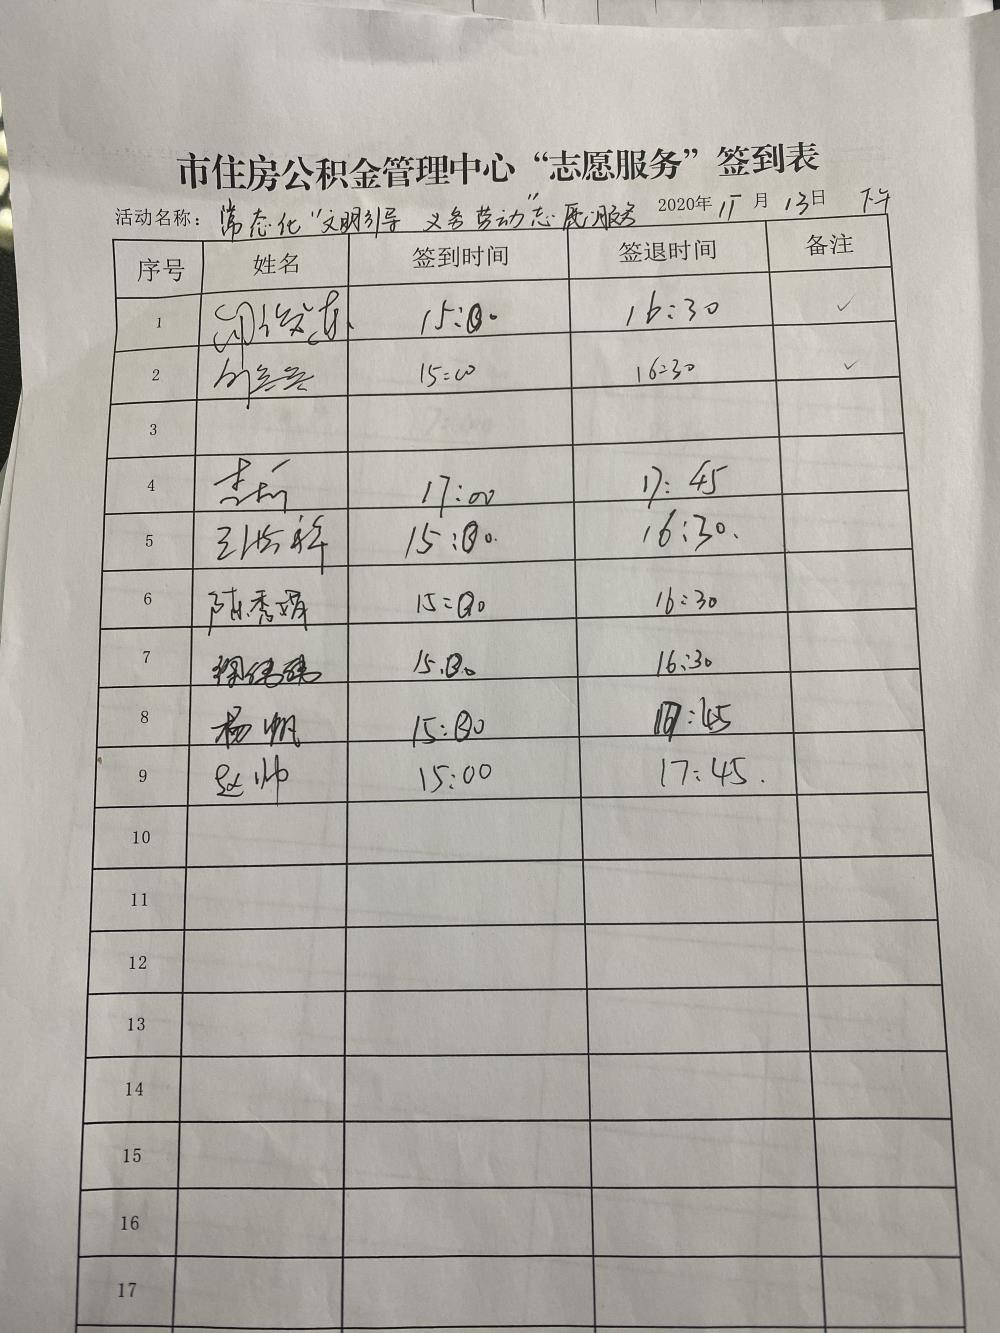 市住房公积金管理中心“志愿服务”签到表
活动名称：常态化“文明引导 义务劳动”志愿服务 2020年11月13日 下午
序号 姓名 签到时间 签退时间 备注
1 15:00. 16:30 ✓
2 15:00 16:30 ✓
3
4 17:00 17:45
5 15:00. 16:30.
6 陈秀娟 15:00 16:30
7 15:00 16:30
8 杨帆 15:00 17:45
9 赵帅 15:00 17:45.
10
11
12
13
14
15
16
17